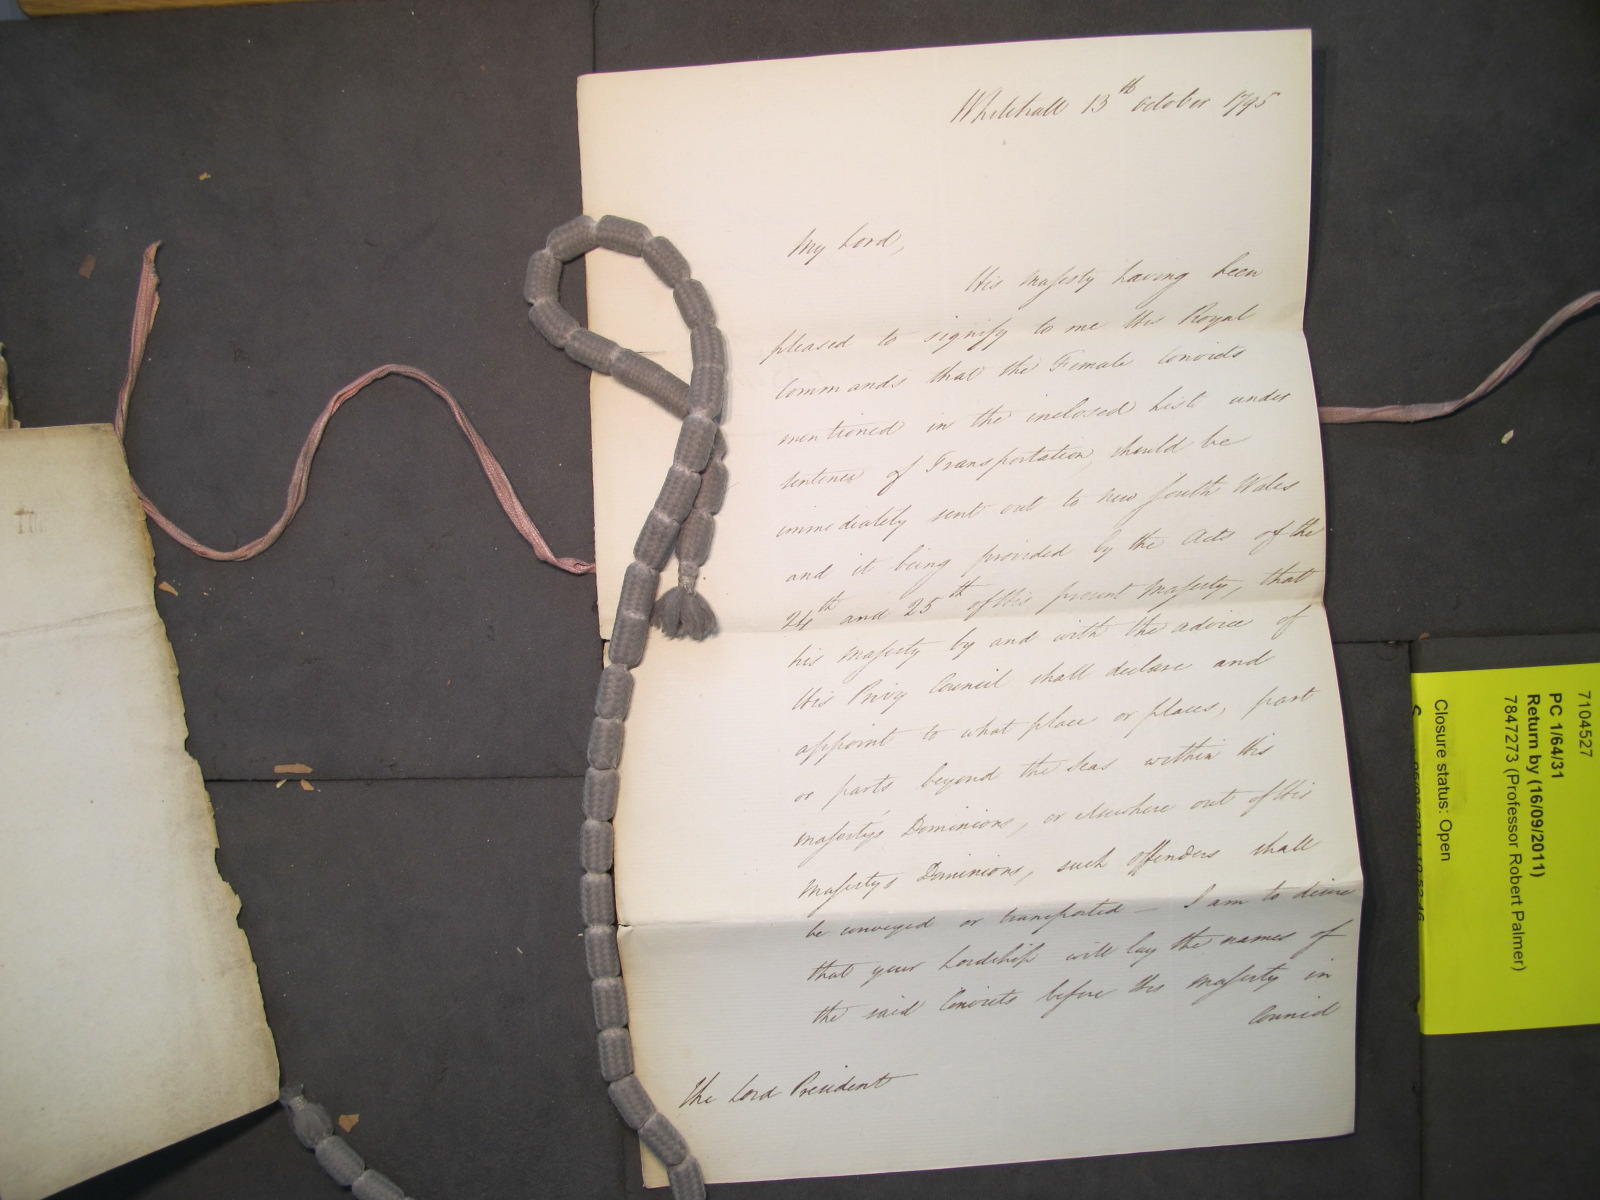 Whitehall 13th October 1795
My Lord,
His Majesty having been
pleased to signify to me His Royal
Commands that the Female Convicts
mentioned in the inclosed List under
sentence of Transportation, should be
immediately sent out to New South Wales
and it being provided by the Acts of the
24th and 25th of His present Majesty, that
his Majesty by and with the advice of
His Privy Council shall declare and
appoint to what place or places, part
or parts beyond the Seas within His
Majesty's Dominions, or elsewhere out of His
Majestys Dominions, such offenders shall
be conveyed or transported — I am to desire
that your Lordship will lay the names of
the said Convicts before His Majesty in
Council
The Lord President
7104527
PC 1/64/31
Return by (16/09/2011)
7847273 (Professor Robert Palmer)
Closure status: Open